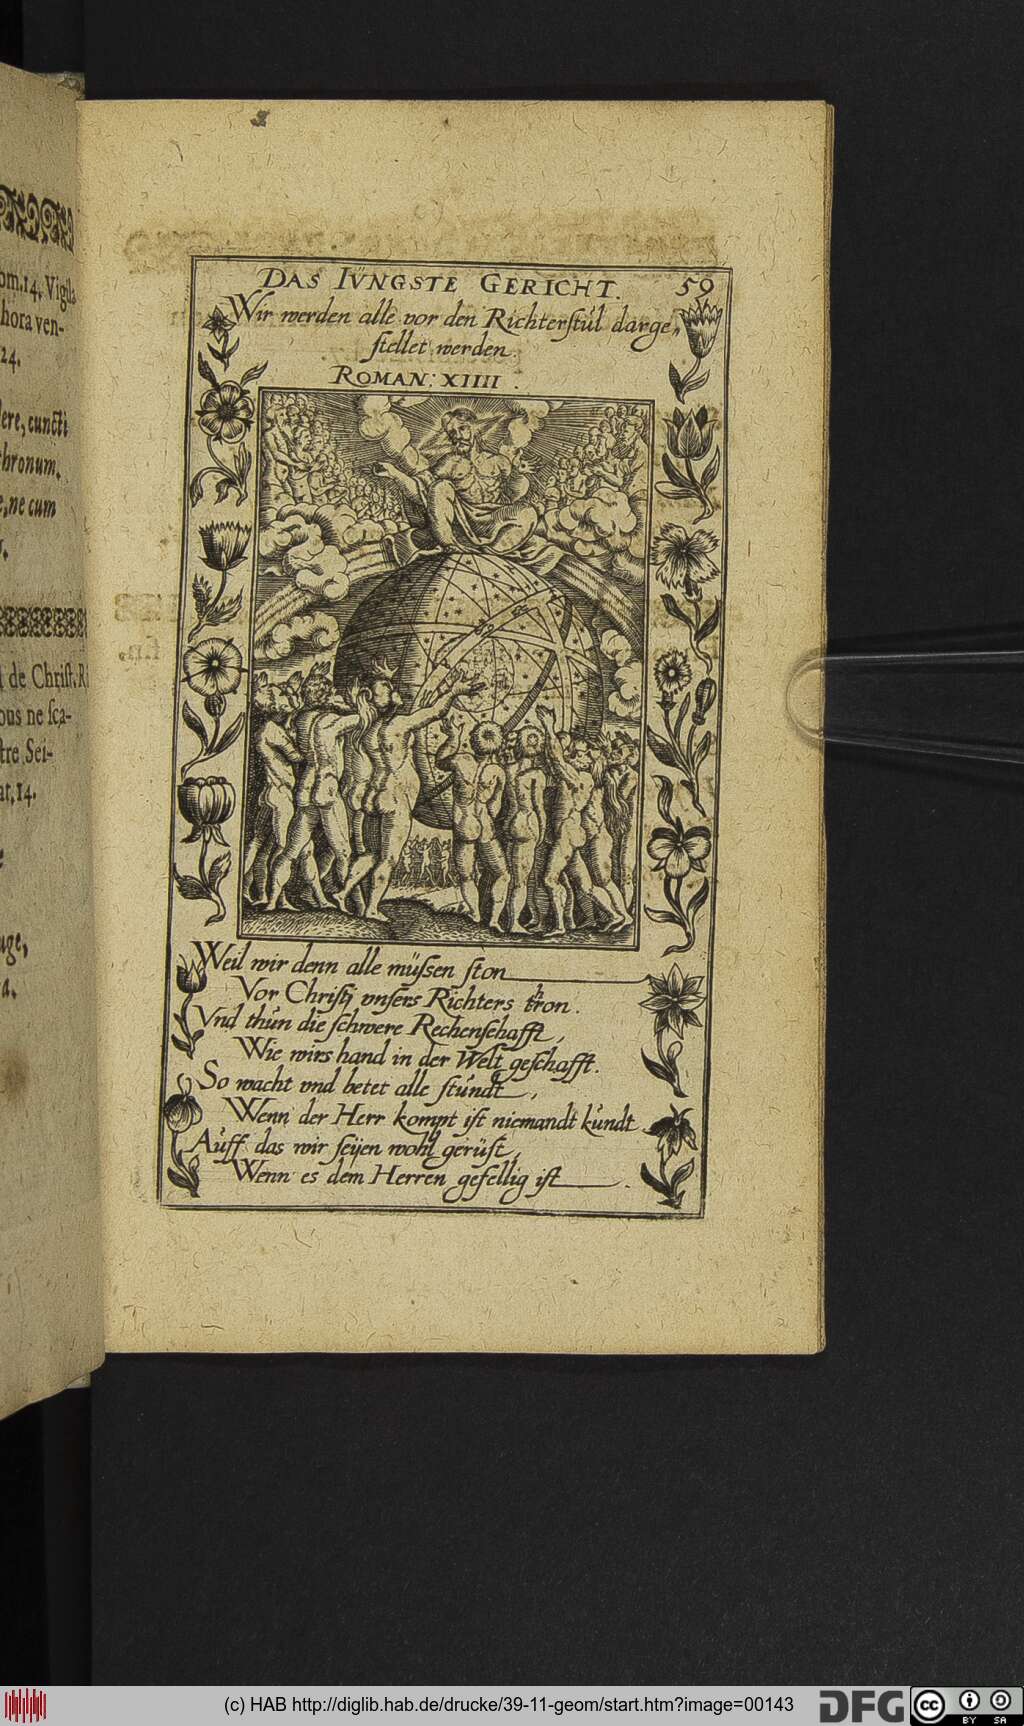 om. 14. Vigila
hora ven-
24.
dere, cuncti
thronum.
e, ne cum
de Christ. Ri
ous ne sça-
tre Sei-
at. 14.
uge,
a.
DAS IÜNGSTE GERICHT. 59
Wir werden alle vor den Richterstůl darge„
stellet werden.
ROMAN: XIIII.
Weil wir denn alle müssen ston
Vor Christj vnsers Richters thron.
Vnd thůn die schwere Rechenschafft,
Wie wirs hand in der Welt geschafft.
So wacht vnd betet alle stůndt,
Wenn der Herr kompt ist niemandt kůndt.
Auff das wir seijen wohl gerüst,
Wenn es dem Herren gefellig ist.
(c) HAB http://diglib.hab.de/drucke/39-11-geom/start.htm?image=00143
DFG
cc
BY SA